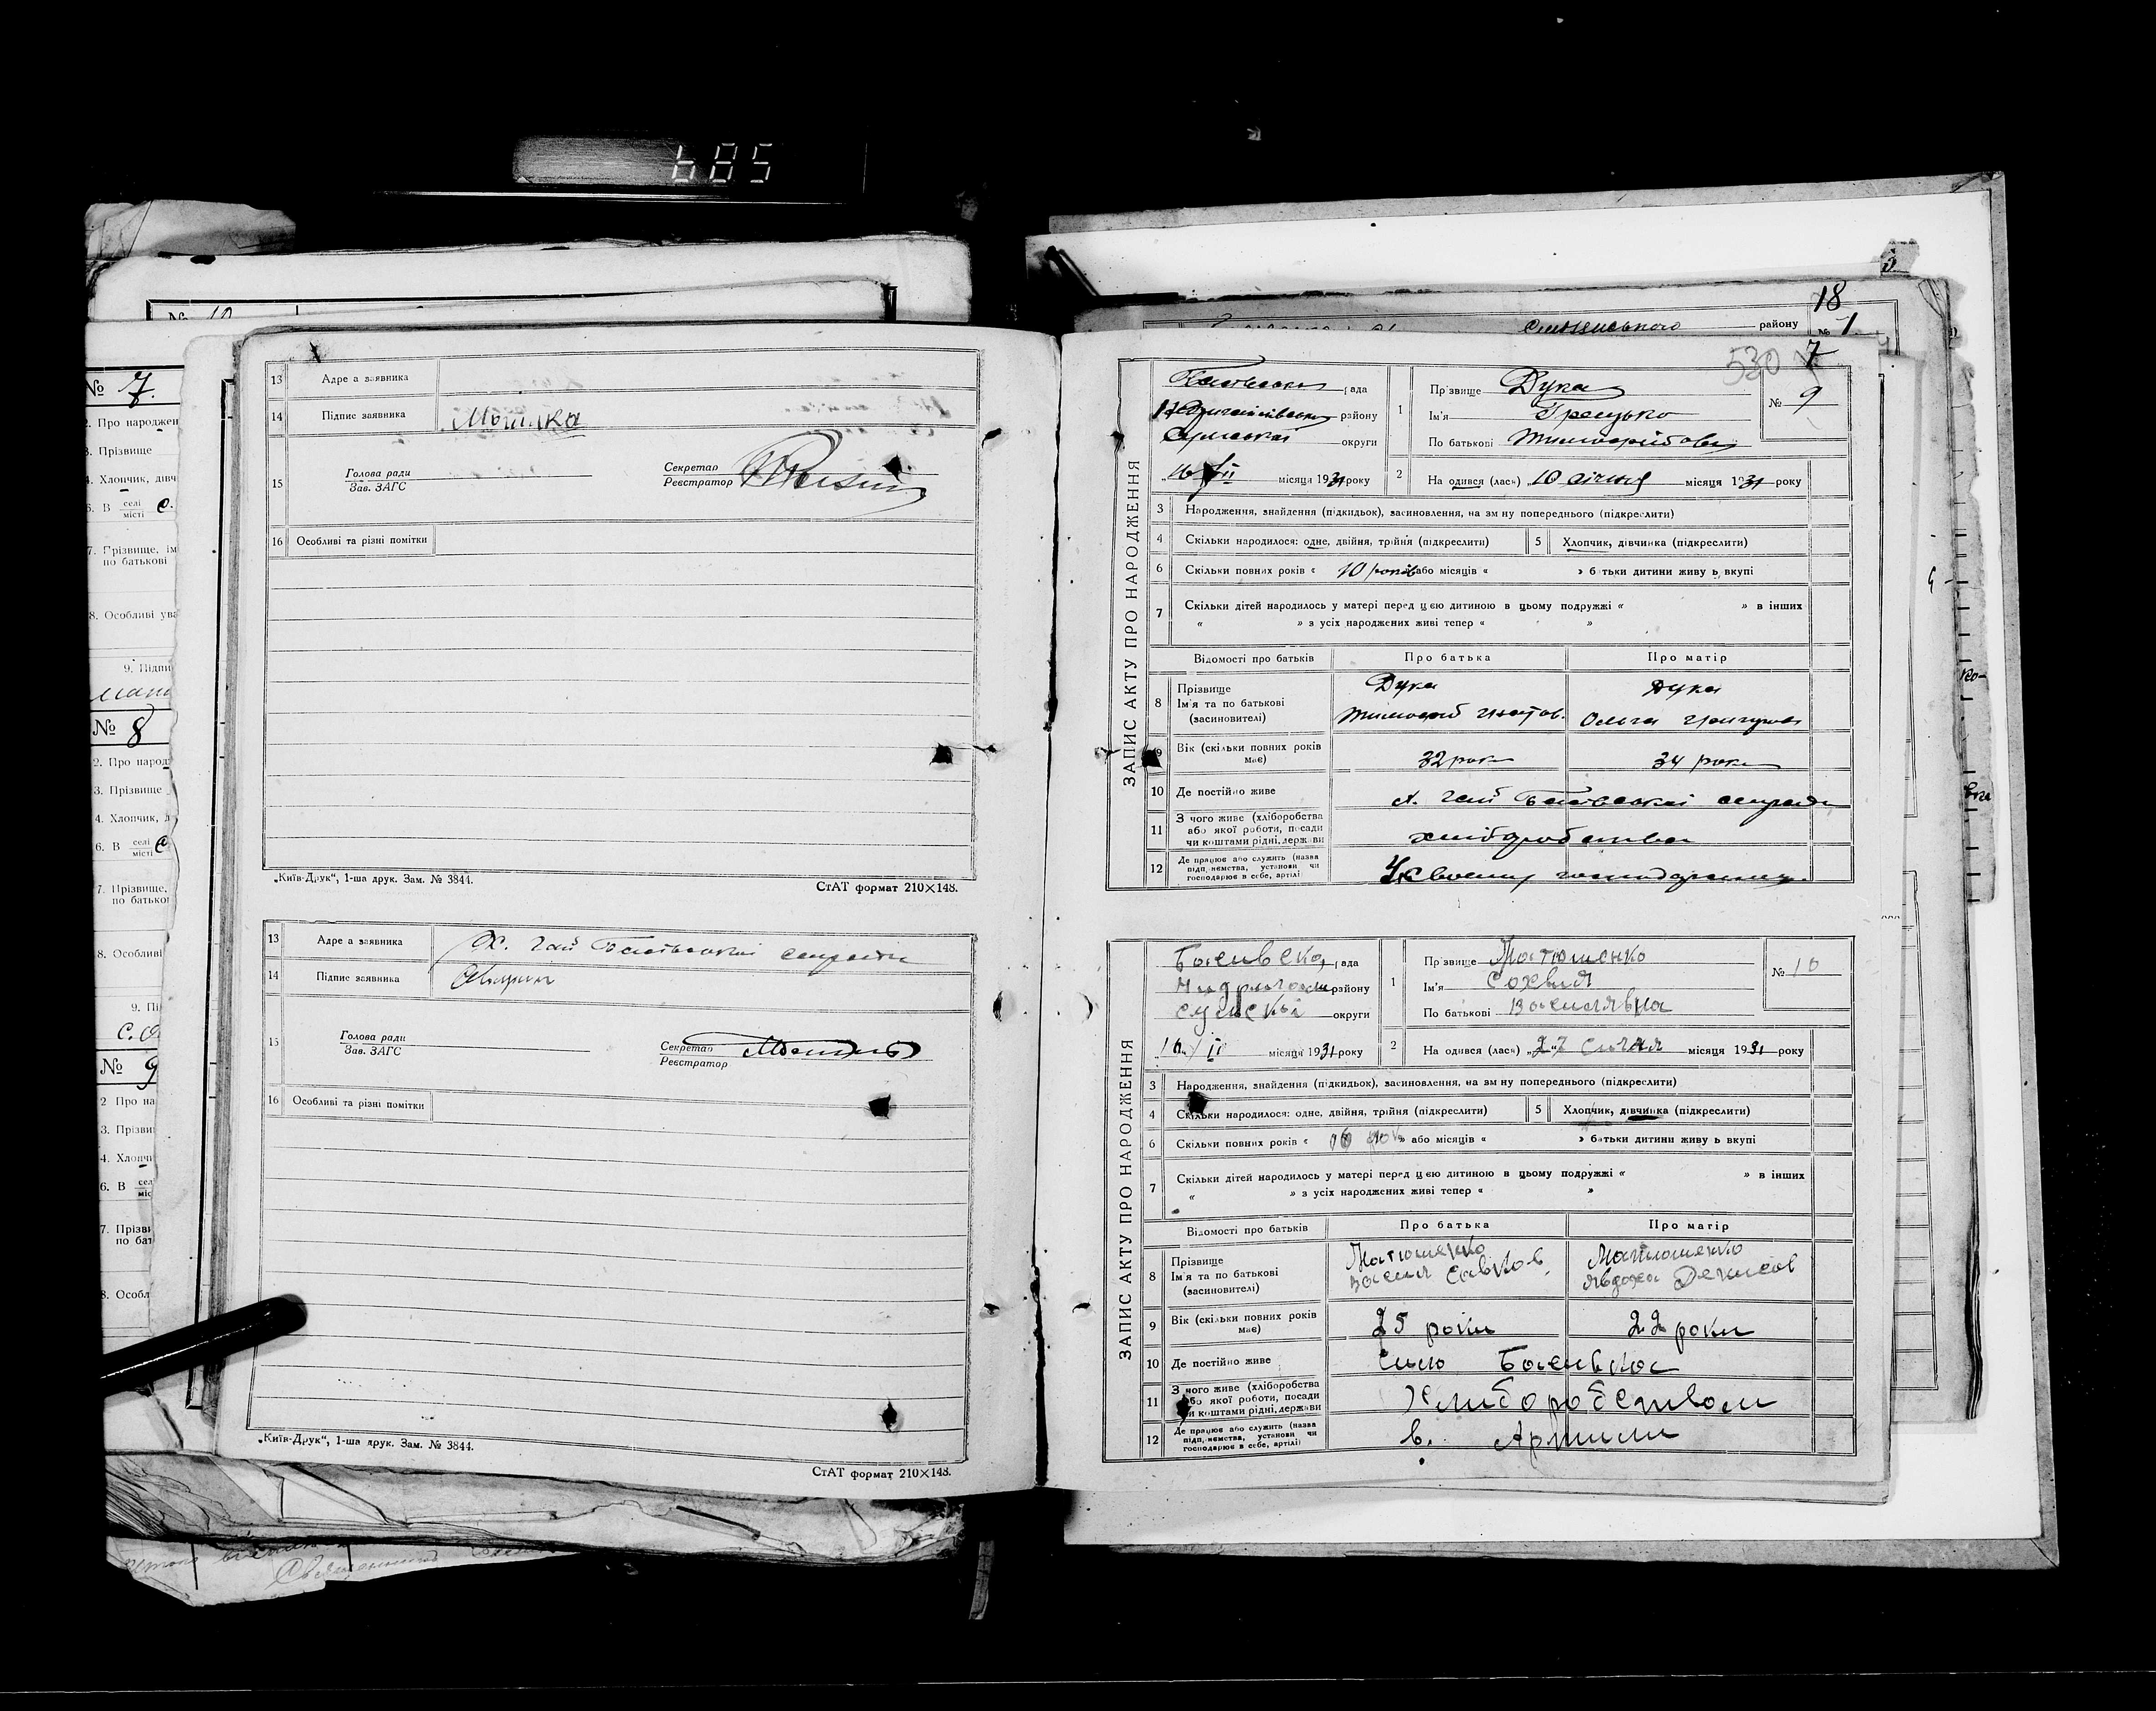 685
№ 10
№ 7.
2. Про народжен
3. Прізвище
4. Хлопчик, дівч
6. В селі місті с.
7. Прізвище, ім
по батькові
8. Особливі ува
9. Підпи
№ 8
2. Про народ
3. Прізвище
4. Хлопчик, д
6. В селі місті с
7. Прізвище,
по батькові
8. Особливі
9. Пі
№ 9
2 Про на
3. Прізви
4. Хлопчи
6. В сел міс
7. Прізви
по бат
8. Особл
13 Адре а заявника
14 Підпис заявника
15 Голова ради
Зав. ЗАГС
Секретар
Реєстратор
16 Особливі та різні помітки
„Київ-Друк“, 1-ша друк. Зам. № 3844.
СтАТ формат 210×148.
13 Адре а заявника Х. Гай сельради
14 Підпис заявника
15 Голова ради
Зав. ЗАГС
Секретар
Реєстратор
16 Особливі та різні помітки
„Київ-Друк“, 1-ша друк. Зам. № 3844.
СтАТ формат 210×148.
18
району № 1
7
530
ЗАПИС АКТУ ПРО НАРОДЖЕННЯ
рада
району
Сумської округи
16 II місяця 1931 року
1 Прізвище Дука
Ім'я Грицько
По батькові Тимофійович
№ 9
2 На одився (лась) „10 січня місяця 1931 року
3 Народження, знайдення (підкидьок), засиновлення, на зм ну попереднього (підкреслити)
4 Скільки народилося: одне, двійня, трійня (підкреслити)
5 Хлопчик, дівчинка (підкреслити)
6 Скільки повних років « 10 років або місяців « » батьки дитини живу ь вкупі
7 Скільки дітей народилось у матері перед цією дитиною в цьому подружжі « » в інших
« » з усіх народжених живі тепер « »
Відомості про батьків Про батька Про матір
8 Прізвище Дука Дука
Ім'я та по батькові Тимофій Ольга
(засиновителі)
9 Вік (скільки повних років має) 32 рок 34 роки
10 Де постійно живе х. Гай сельради
11 З чого живе (хліборобства
або якої роботи, посади
чи коштами рідні, держави
хліборобства
12 Де працює або служить (назва
підп иємства, установи чи
господарює в себе, артілі)
У своему господарстві
ЗАПИС АКТУ ПРО НАРОДЖЕННЯ
Басивска, рада
району
округи
16 II місяця 1931 року
1 Пр звище Матюшенко
Ім'я Сохвия
По батькові Василявна
№ 10
2 На одився (лась) „27 сичня місяця 1931 року
3 Народження, знайдення (підкидьок), засиновлення, на зм ну попереднього (підкреслити)
4 Скільки народилося: одне, двійня, трійня (підкреслити)
5 Хлопчик, дівчинка (підкреслити)
6 Скільки повних років « або місяців « » батьки дитини живу ь вкупі
7 Скільки дітей народилось у матері перед цією дитиною в цьому подружжі « » в інших
« » з усіх народжених живі тепер « »
Відомості про батьків Про батька Про матір
8 Прізвище Матюшенко Матюшенко
Ім'я та по батькові Василя Савков. Явдоха Денисов
(засиновителі)
9 Вік (скільки повних років має) 25 роки 22 роки
10 Де постійно живе село Басивка
11 З чого живе (хліборобства
або якої роботи, посади
чи коштами рідні, держави
Хлиборобством
12 Де працює або служить (назва
підп иємства, установи чи
господарює в себе, артілі)
в. Артили